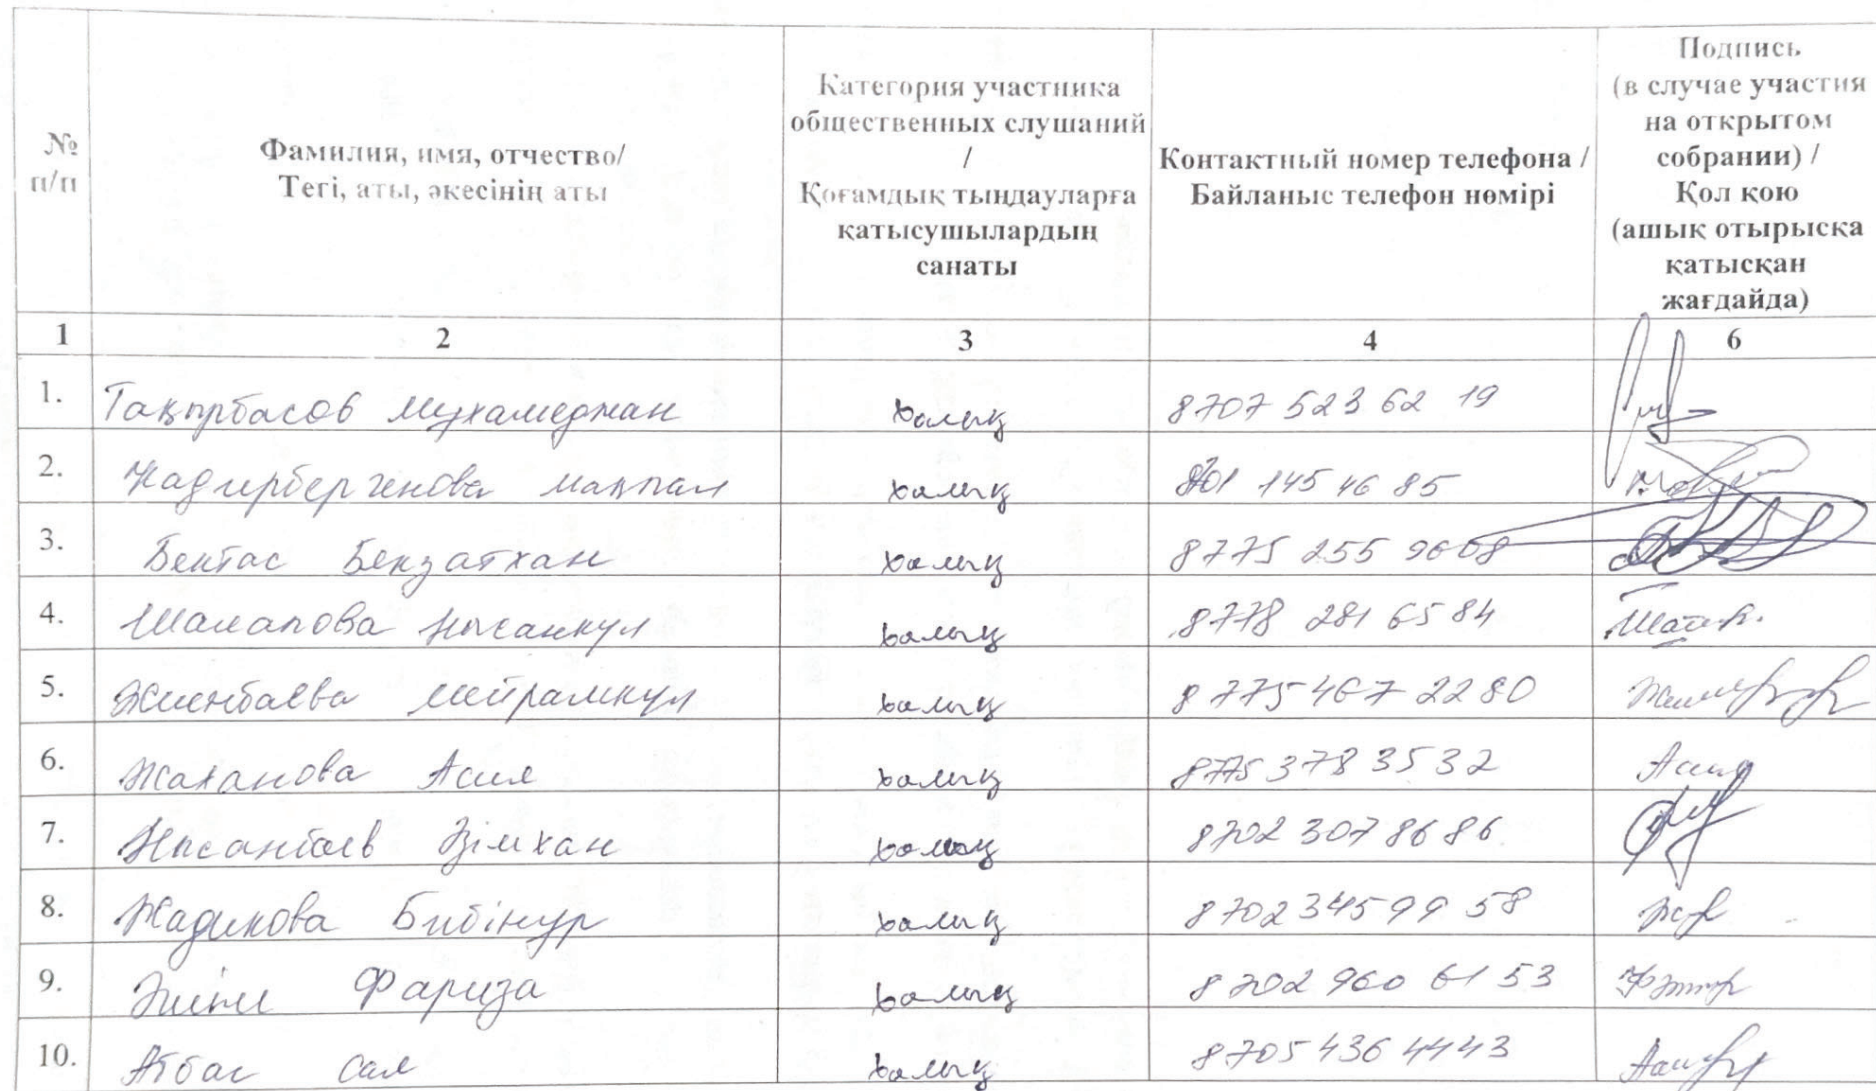 № п/п
Фамилия, имя, отчество/
Тегі, аты, әкесінің аты
Категория участника
общественных слушаний
/
Қоғамдық тыңдауларға
қатысушылардың
санаты
Контактный номер телефона /
Байланыс телефон нөмірі
Подпись
(в случае участия
на открытом
собрании) /
Қол қою
(ашық отырысқа
қатысқан
жағдайда)
1 2 3 4 6
1. Тақырбасов Мухамеджан халық 8707 523 62 19
2. Кадирбергенова Макпал халық 8701 145 46 85
3. Бектас Бекзатхан халық 8775 255 9608
4. Шалапова Нысанкул халық 8778 281 65 84
5. Жиенбаева Мейрамкул халық 8775 467 2280
6. Жаханова Асил халық 8775 378 3532
7. Нысанбаев Әзімхан халық 8702 307 8686
8. Жадикова Бибінур халық 8702 345 99 58
9. Фариза халық 8702 960 61 53
10. халық 8705 436 4443